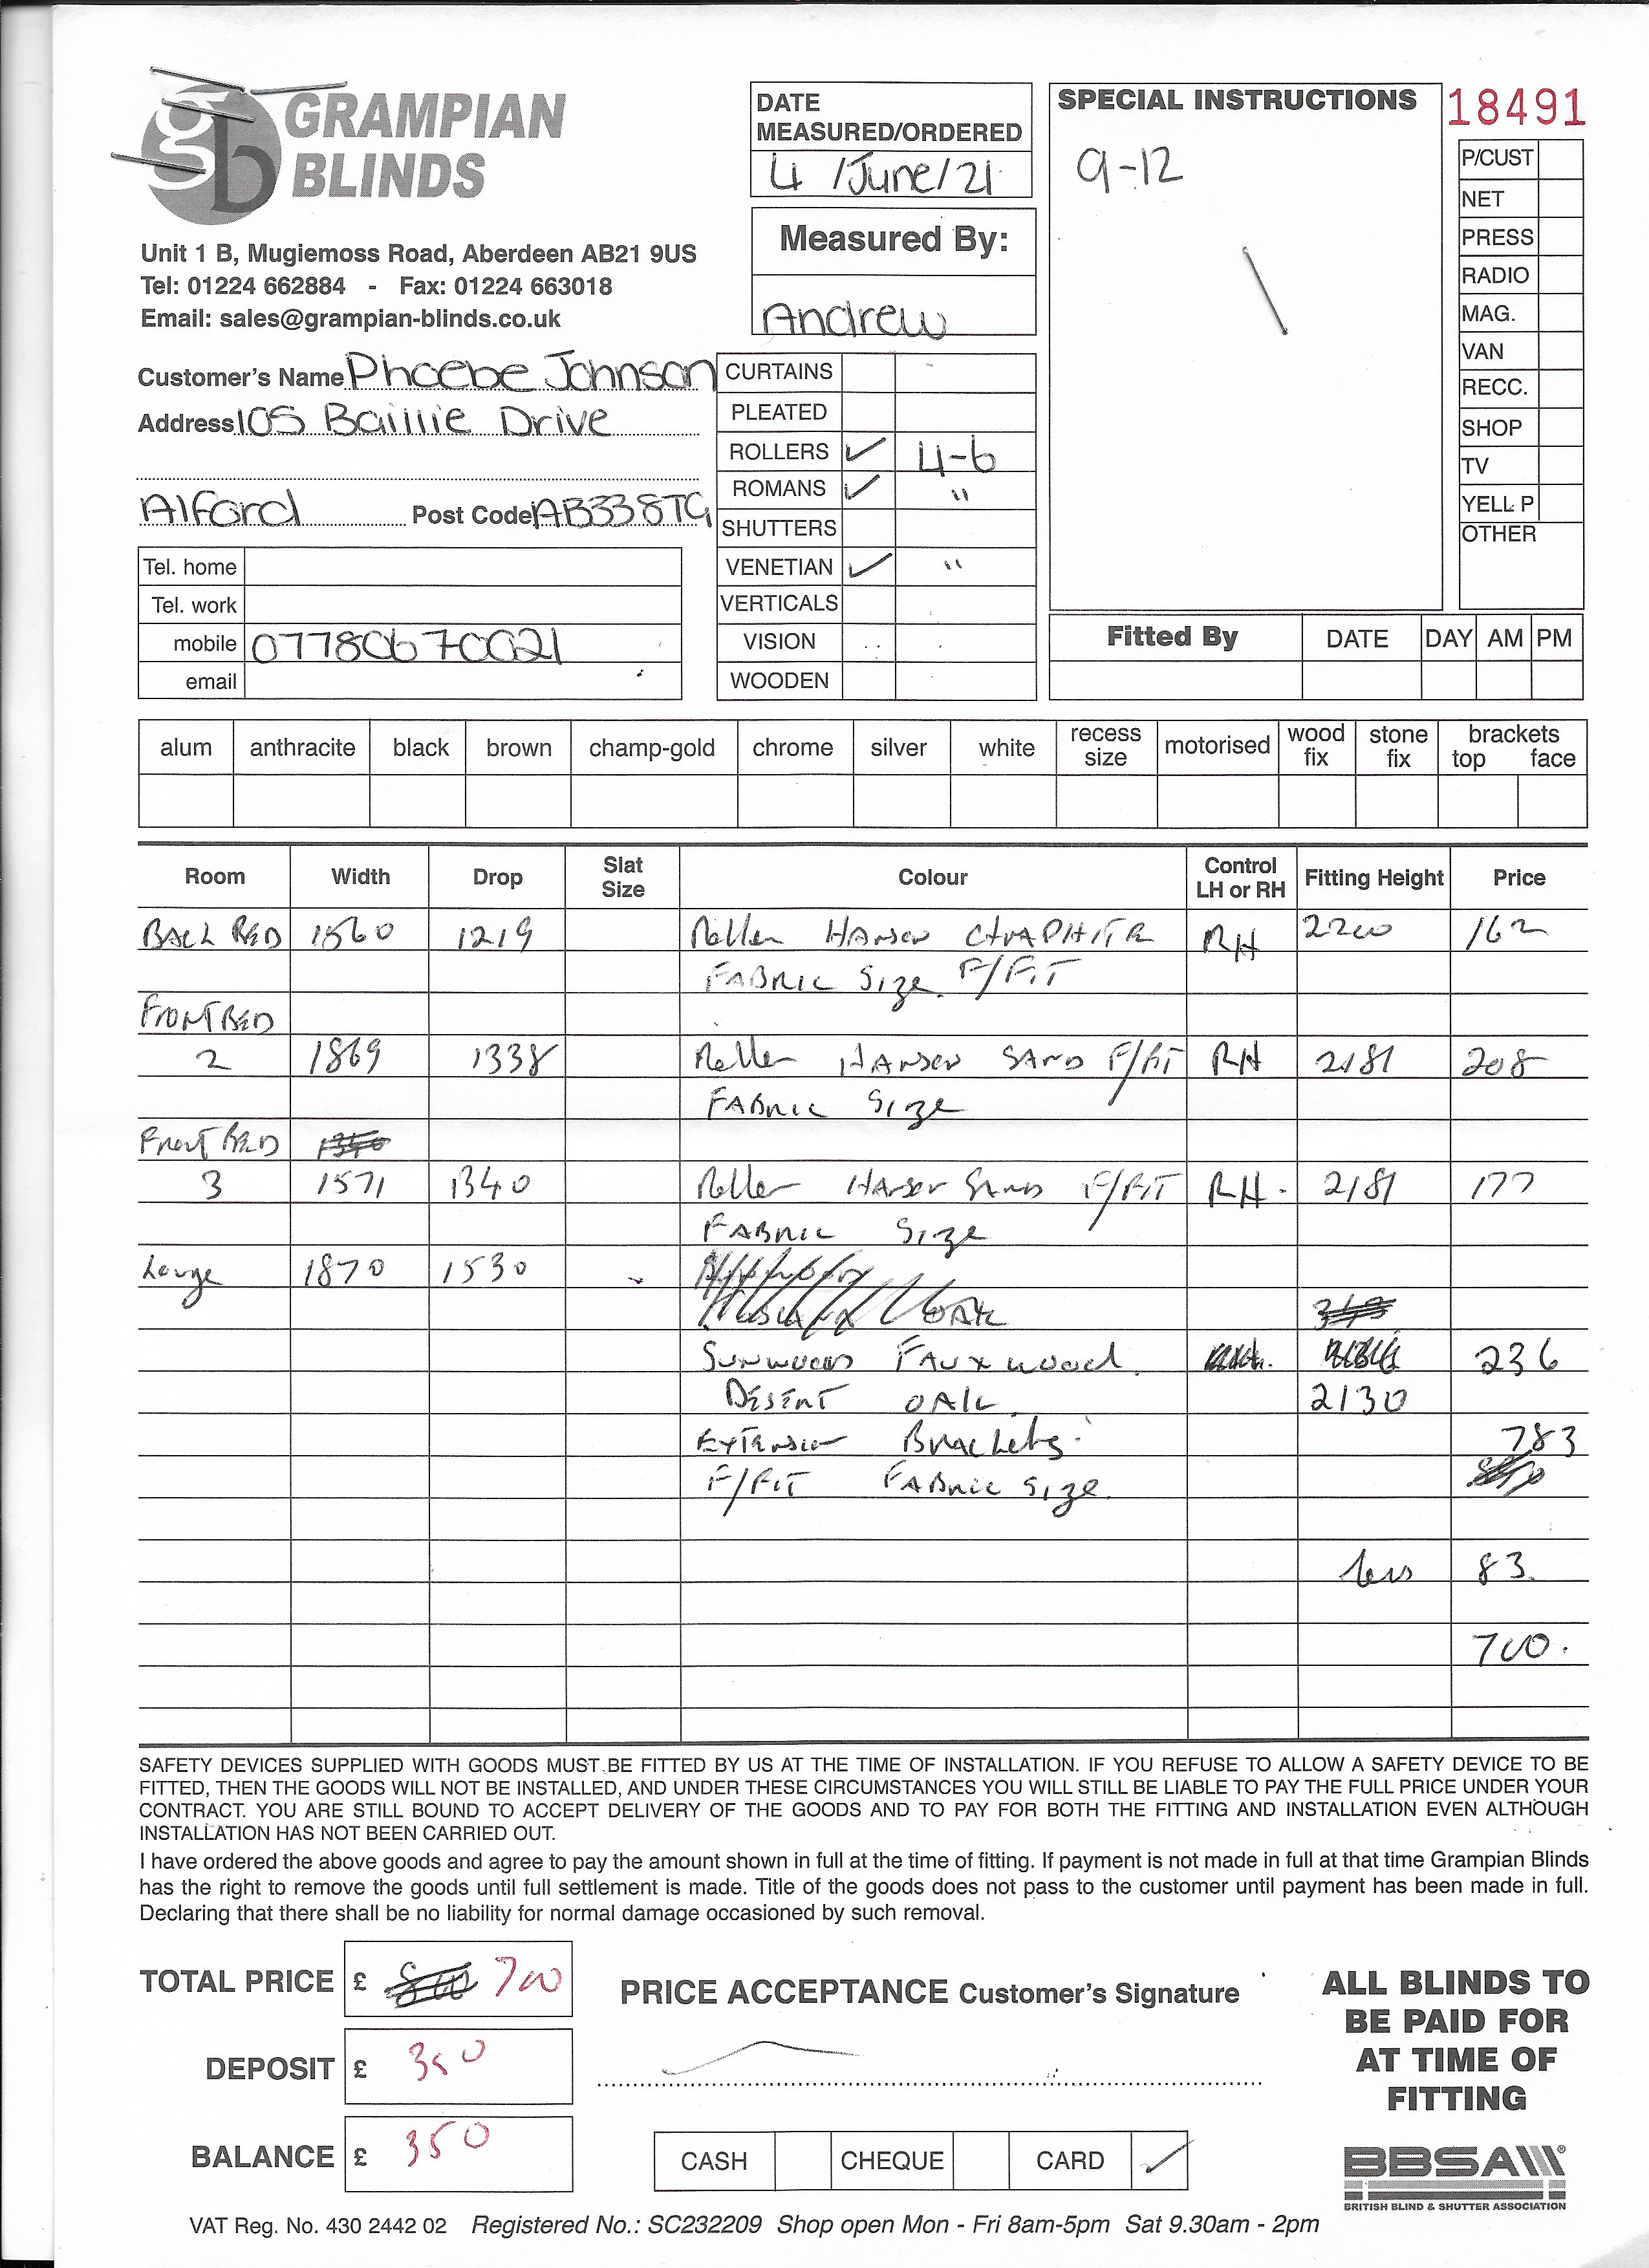 GRAMPIAN
BLINDS
Unit 1 B, Mugiemoss Road, Aberdeen AB21 9US
Tel: 01224 662884 - Fax: 01224 663018
Email: sales@grampian-blinds.co.uk
DATE
MEASURED/ORDERED
4 /June/21
Measured By:
Andrew
SPECIAL INSTRUCTIONS
9-12
18491
P/CUST
NET
PRESS
RADIO
MAG.
VAN
RECC.
SHOP
TV
YELL P
OTHER
Customer's Name Phoebe Johnson
Address 105 Baillie Drive
Alford Post Code AB338TG
Tel. home
Tel. work
mobile 07780670021
email
CURTAINS
PLEATED
ROLLERS ✓ 4-6
ROMANS ✓ "
SHUTTERS
VENETIAN ✓ "
VERTICALS
VISION
WOODEN
Fitted By DATE DAY AM PM
alum anthracite black brown champ-gold chrome silver white recess size motorised wood fix stone fix brackets top face
Room Width Drop Slat Size Colour Control LH or RH Fitting Height Price
BACK BED 1560 1219 Roller HANSEN GRAPHITE RH 2200 162
FABRIC Size F/FIT
FRONT BED
2 1869 1338 Roller HANSEN SAND F/FIT RH 2181 208
FABRIC Size
Front BED
3 1571 1340 Roller HANSEN SAND F/FIT RH. 2181 177
FABRIC Size
Lounge 1870 1530
OAK
SUNWOOD FAUXwood 236
DESERT OAK 2130
EXTENSION Brackets. 783
F/FIT FABRIC Size.
less 83.
700.
SAFETY DEVICES SUPPLIED WITH GOODS MUST BE FITTED BY US AT THE TIME OF INSTALLATION. IF YOU REFUSE TO ALLOW A SAFETY DEVICE TO BE
FITTED, THEN THE GOODS WILL NOT BE INSTALLED, AND UNDER THESE CIRCUMSTANCES YOU WILL STILL BE LIABLE TO PAY THE FULL PRICE UNDER YOUR
CONTRACT. YOU ARE STILL BOUND TO ACCEPT DELIVERY OF THE GOODS AND TO PAY FOR BOTH THE FITTING AND INSTALLATION EVEN ALTHOUGH
INSTALLATION HAS NOT BEEN CARRIED OUT.
I have ordered the above goods and agree to pay the amount shown in full at the time of fitting. If payment is not made in full at that time Grampian Blinds
has the right to remove the goods until full settlement is made. Title of the goods does not pass to the customer until payment has been made in full.
Declaring that there shall be no liability for normal damage occasioned by such removal.
TOTAL PRICE £ 700
DEPOSIT £ 350
BALANCE £ 350
PRICE ACCEPTANCE Customer's Signature
CASH CHEQUE CARD ✓
ALL BLINDS TO
BE PAID FOR
AT TIME OF
FITTING
BBSA
BRITISH BLIND & SHUTTER ASSOCIATION
VAT Reg. No. 430 2442 02 Registered No.: SC232209 Shop open Mon - Fri 8am-5pm Sat 9.30am - 2pm